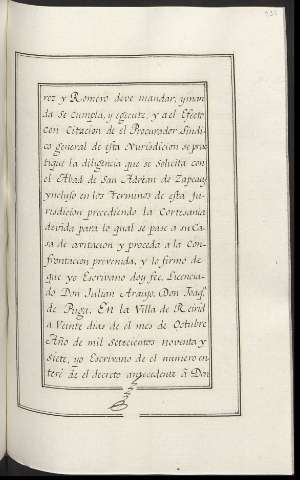 roz y Romero deve mandar, y man
da se cumpla, y egecute, y a el Efecto
con Citacion de el Procurador Sindi
co general de esta Jurisdicion se prac
tique la diligencia que se solicita con
el Abad de San Adrian de Zapeay
yncluso en los Terminos de esta Ju-
risdicion precediendo la Cortesania
devida para lo qual se pase a su Ca
sa de avitacion y proceda a la Con
frontacion prevenida, y lo firmo de
que yo Escrivano doy fee. Licencia-
do Don Julian Araujo, Don Joaq.
de Puga. En la Villa de
a Veinte dias de el mes de Octubre
Año de mil Setecientos noventa y
siete, yo Escrivano de el numero en
teré de el decreto antecedente a Don